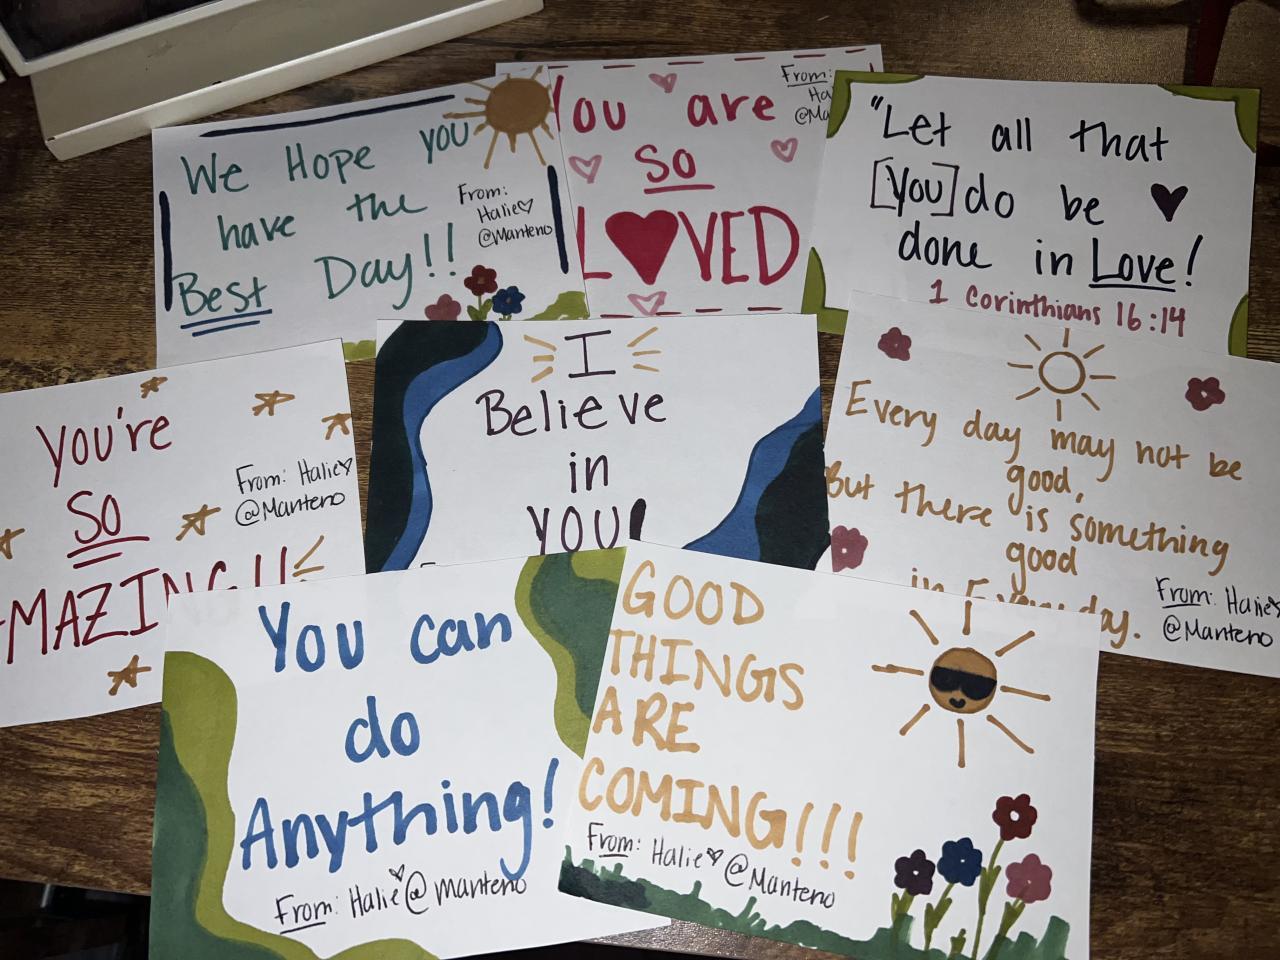 We Hope you
have the
Best Day!!
From:
Halie♡
@Manteno
You are
so
LOVED
From:
"Let all that
[you] do be
done in Love!
1 Corinthians 16:14
You're
SO
AMAZING!!
From: Halie♡
@Manteno
I
Believe
in
YOU!
Every day may not be
good,
But there is something
good
in Everyday.
From: Halie♡
@Manteno
You can
do
Anything!
From: Halie♡@manteno
GOOD
THINGS
ARE
COMING!!!
From: Halie♡@Manteno